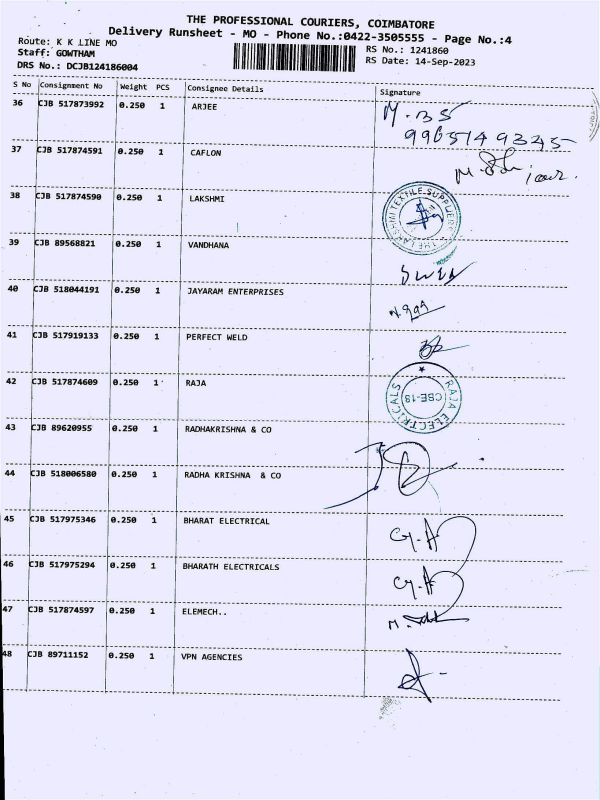 THE PROFESSIONAL COURIERS, COIMBATORE
Delivery Runsheet - MO - Phone No.:0422-3505555 - Page No.:4
Route: K K LINE MO
RS No.: 1241860
Staff: GOWTHAM
RS Date: 14-Sep-2023
DRS No.: DCJB124186004
S No Consignment No Weight PCS Consignee Details Signature
36 CJB 517873992 0.250 1 ARJEE
9965149345
37 CJB 517874591 0.250 1 CAFLON
38 CJB 517874590 0.250 1 LAKSHMI
THE LAKSHMI TEXTILE SUPPLIERS
39 CJB 89568821 0.250 1 VANDHANA
40 CJB 518044191 0.250 1 JAYARAM ENTERPRISES
41 CJB 517919133 0.250 1 PERFECT WELD
42 CJB 517874609 0.250 1 RAJA
RAJA ELECTRICALS
CBE-18
43 CJB 89620955 0.250 1 RADHAKRISHNA & CO
44 CJB 518006580 0.250 1 RADHA KRISHNA & CO
45 CJB 517975346 0.250 1 BHARAT ELECTRICAL
46 CJB 517975294 0.250 1 BHARATH ELECTRICALS
47 CJB 517874597 0.250 1 ELEMECH..
48 CJB 89711152 0.250 1 VPN AGENCIES